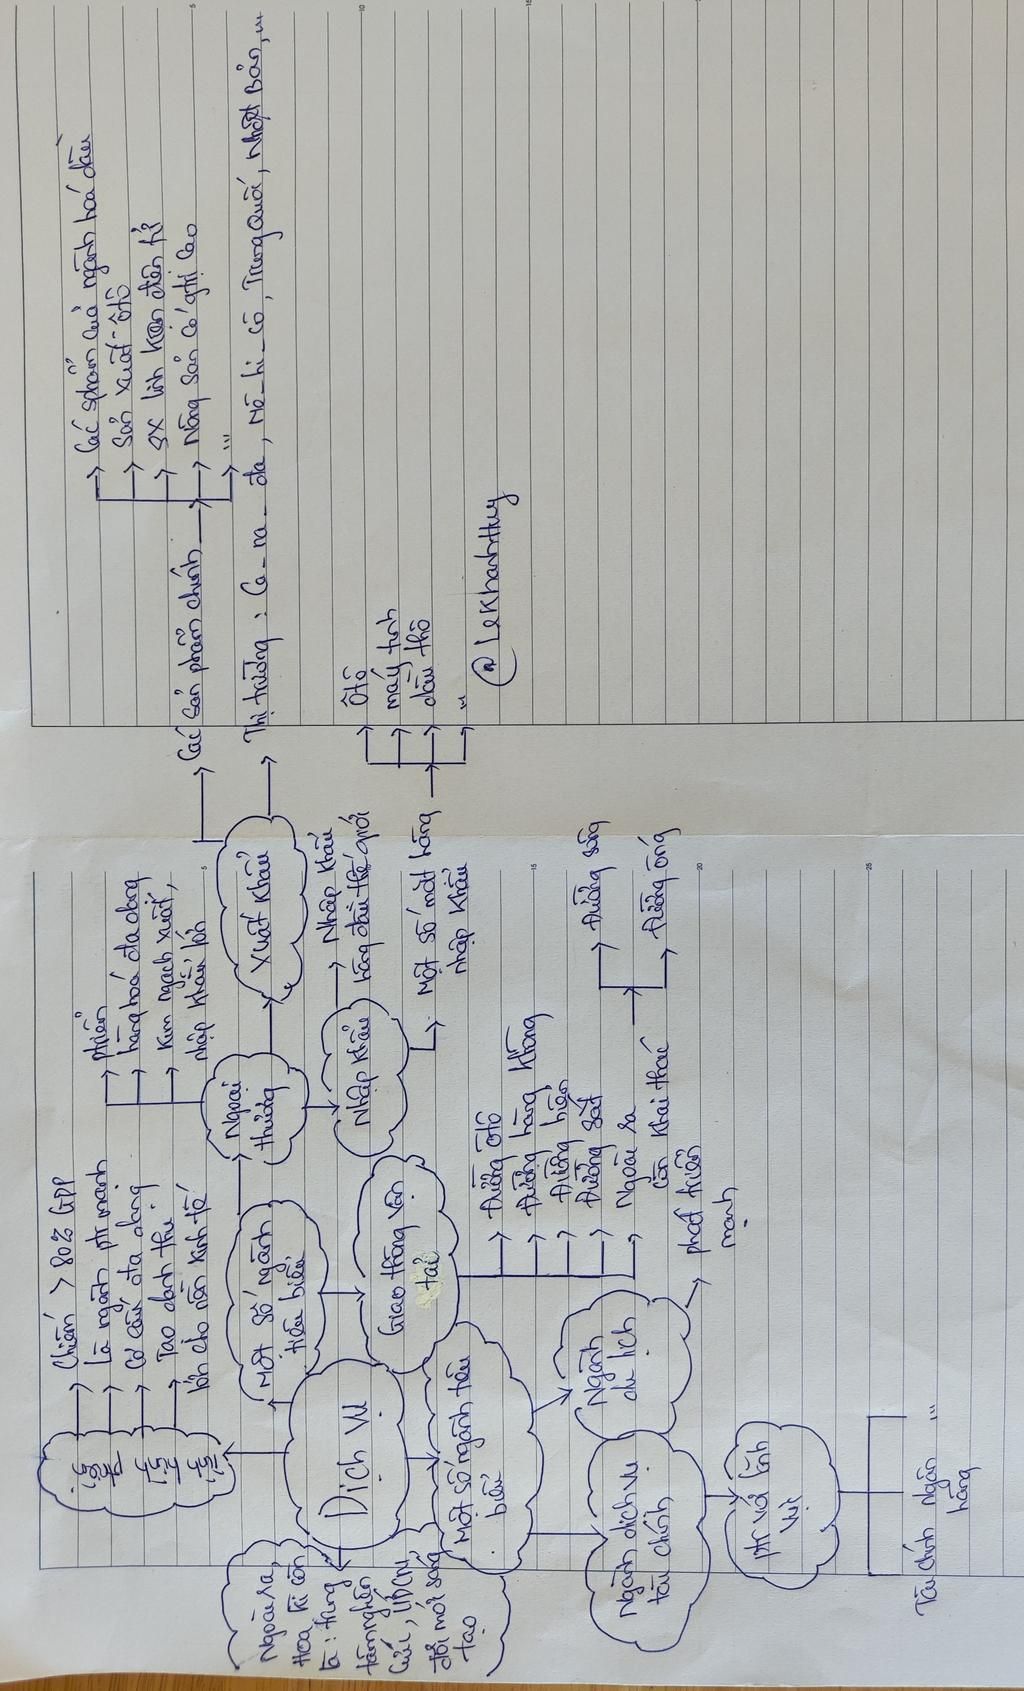 Dịch vụ
Chiếm > 80% GDP
Là ngành ptr mạnh
Cơ cấu đa dạng
Tạo danh thu
lớn cho nền kinh tế
Một số ngành
tiêu biểu
Ngoại
thương
phiển
hàng hoá đa dạng
Kim ngạch xuất,
nhập khẩu lớn
Xuất khẩu
Các sản phẩm chính
Các sphẩm của ngành hoá dầu
Sản xuất ôtô
SX linh kiện điện tử
Nông sản có gtrị cao
...
Thị trường : Ca_na_đa, Mê_hi_cô, Trung Quốc, Nhật Bản,...
Nhập khẩu
Nhập khẩu
hàng đầu thế giới
Một số mặt hàng
nhập khẩu
Ôtô
máy tính
dầu thô
...
@LeKhanhHuy
Giao thông vận
tải
Đường ôtô
Đường hàng không
Đường biển
Đường sắt
Ngoài ra
còn khai thác
Đường sông
Đường ống
Một số ngành tiêu
biểu
Ngành
du lịch
phát triển
mạnh
Ngành dịch vụ
tài chính
ptr với lĩnh
vực
Tài chính
Ngân
hàng
...
Ngoài ra,
Hoa Kì còn
là : trung
tâm nghiên
cứu, UDCN,
đổi mới sáng
tạo